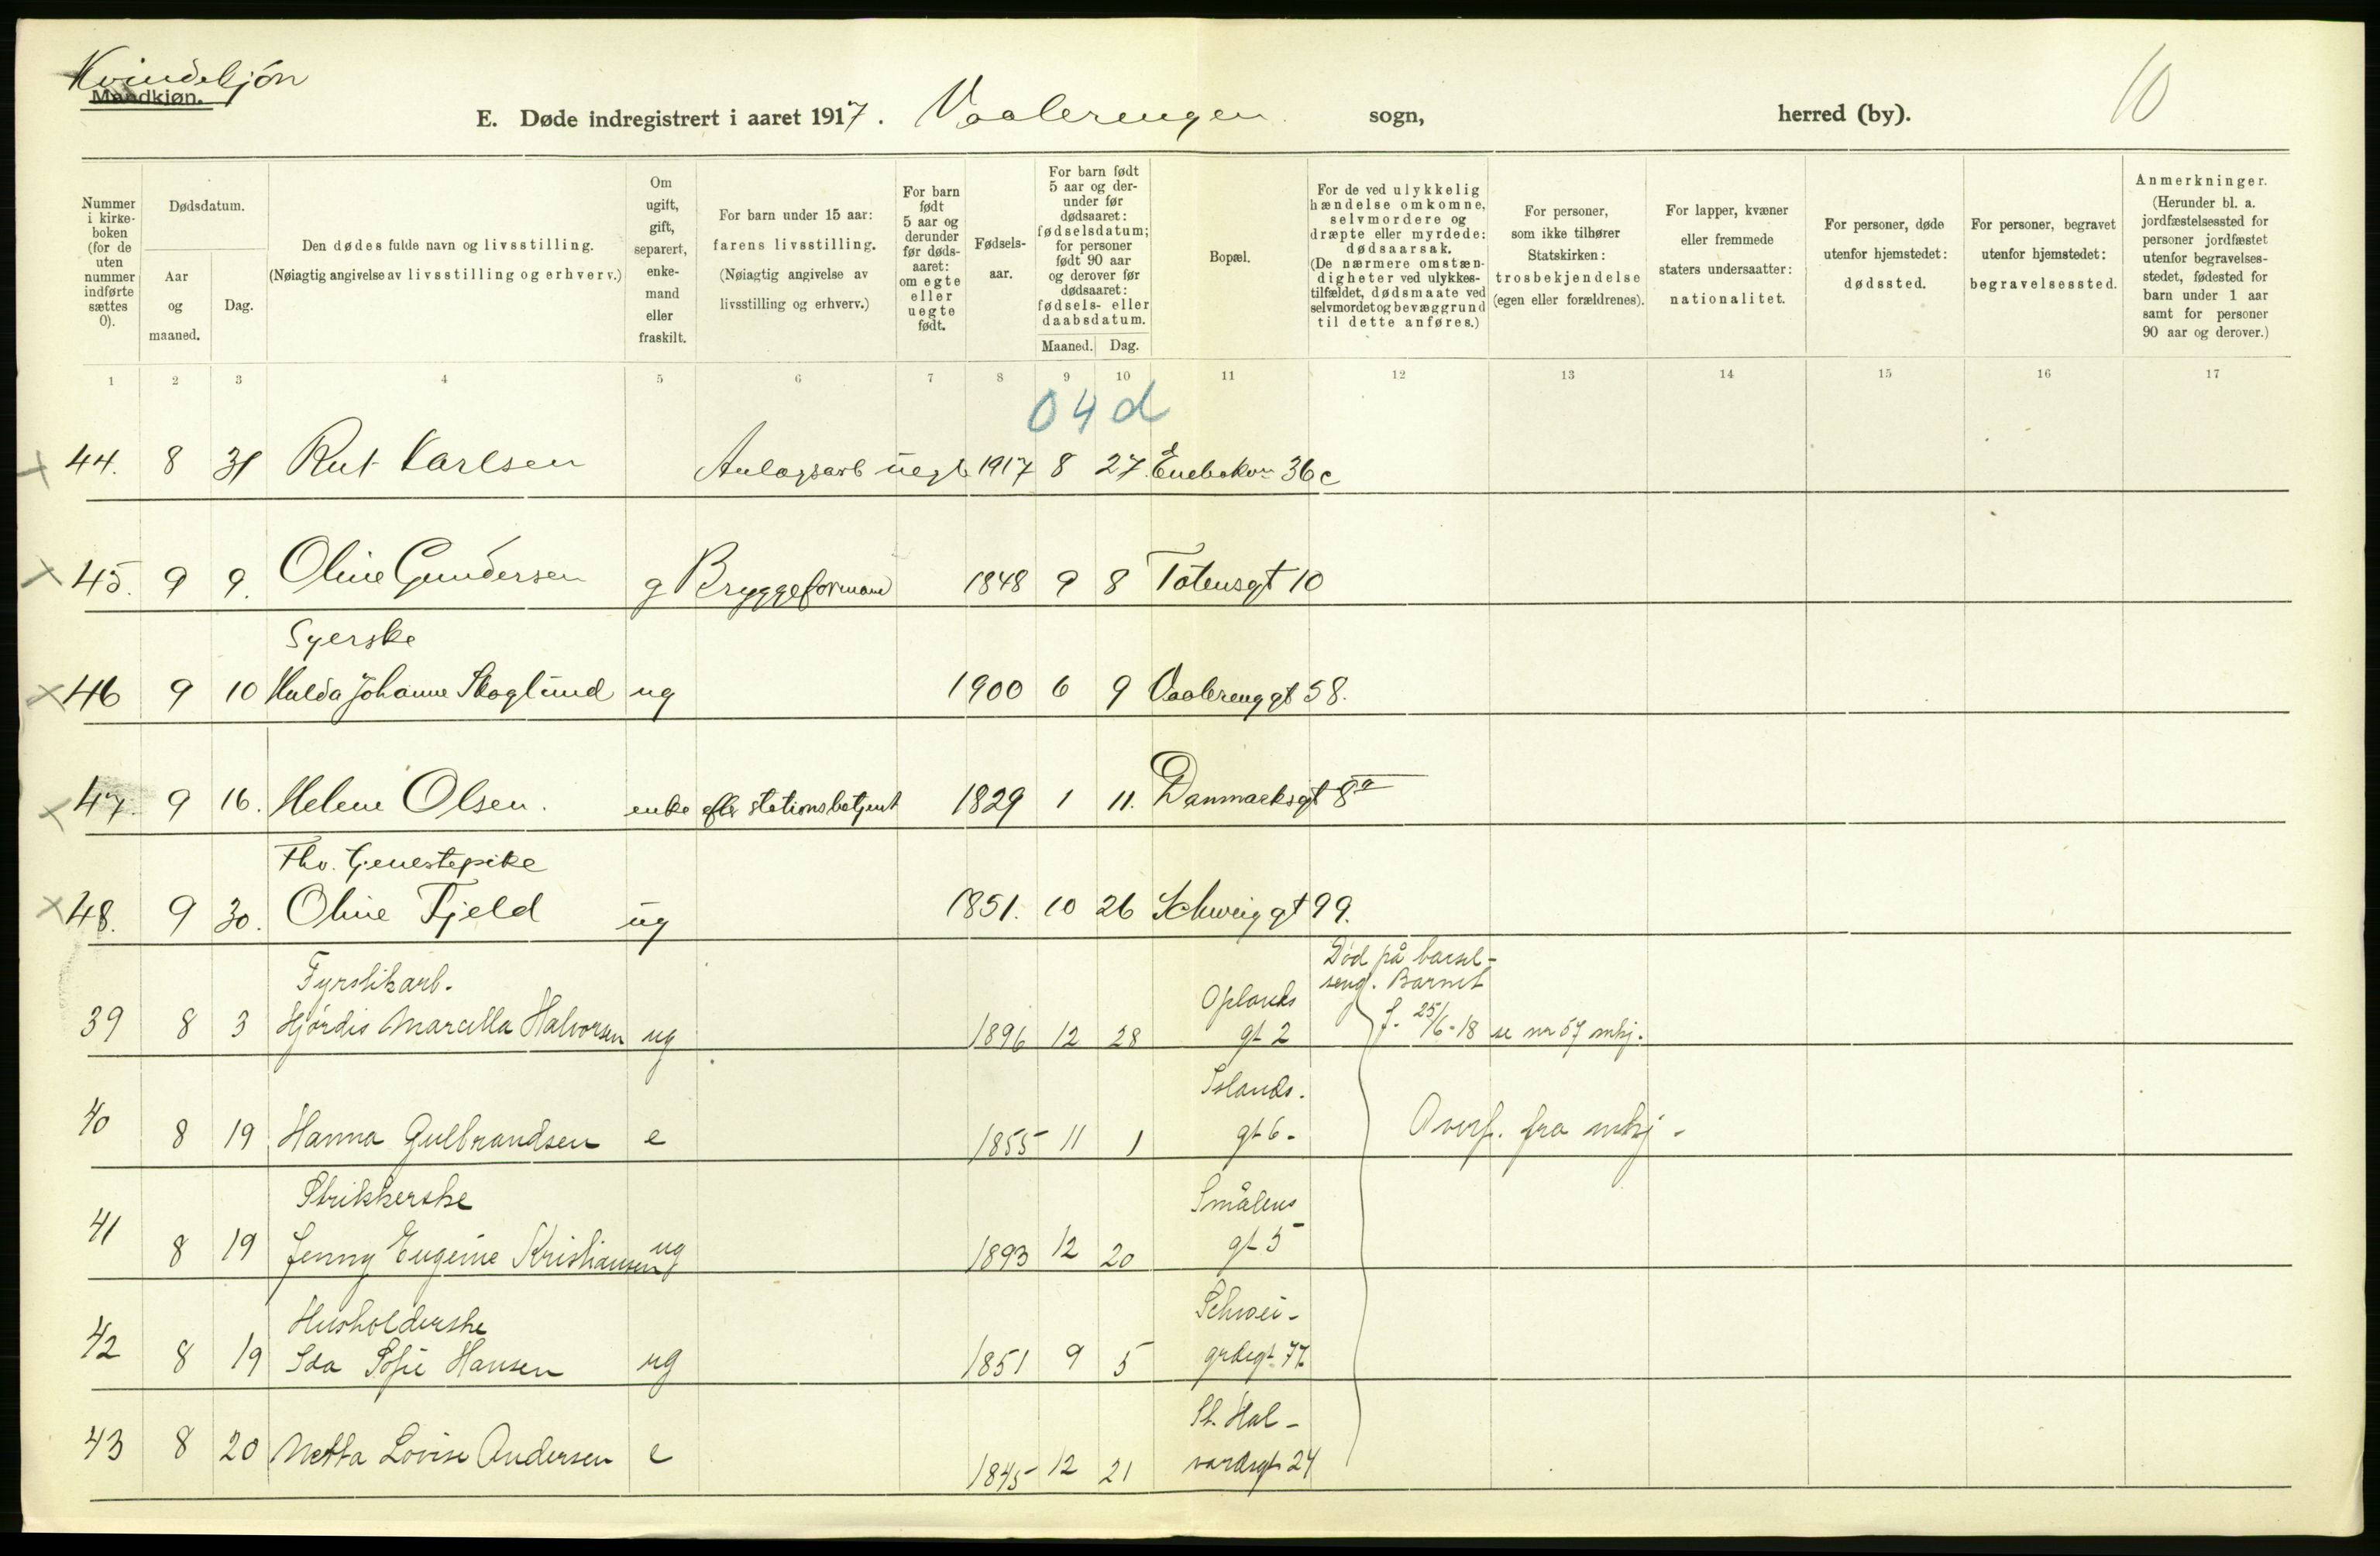 Kvindekjøn
Mandkjøn.
E. Døde indregistrert i aaret 1917. Vaalerengen sogn, herred (by). 10
Nummer i kirke-boken (for de uten nummer indførte sættes 0).
Dødsdatum.
Aar og maaned.
Dag.
Den dødes fulde navn og livsstilling.
(Nøiagtig angivelse av livsstilling og erhverv.)
Om ugift, gift, separert, enke-mand eller fraskilt.
For barn under 15 aar:
farens livsstilling.
(Nøiagtig angivelse av
livsstilling og erhverv.)
For barn født 5 aar og derunder før døds-aaret: om egte eller uegte født.
Fødsels-aar.
For barn født 5 aar og der-under før dødsaaret: fødselsdatum; for personer født 90 aar og derover før dødsaaret: fødsels- eller daabsdatum.
Maaned. Dag.
Bopæl.
For de ved ulykkelig hændelse omkomne, selvmordere og dræpte eller myrdede: dødsaarsak. (De nærmere omstæn-digheter ved ulykkes-tilfældet, dødsmaate ved selvmordet og bevæggrund til dette anføres.)
For personer, som ikke tilhører Statskirken: trosbekjendelse (egen eller forældrenes).
For lapper, kvæner eller fremmede staters undersaatter: nationalitet.
For personer, døde utenfor hjemstedet: dødssted.
For personer, begravet utenfor hjemstedet: begravelsessted.
Anmerkninger. (Herunder bl. a. jordfæstelsessted for personer jordfæstet utenfor begravelses-stedet, fødested for barn under 1 aar samt for personer 90 aar og derover.)
1 2 3 4 5 6 7 8 9 10 11 12 13 14 15 16 17
04d
44. 8 31 Rut Karlsen Anlagsarb uegt 1917 8 27. Enebakvn 36c
45. 9 9. Oline Gundersen g Bryggeformand 1848 9 8 Totensgt 10
Syerske
46 9 10 Hulda Johanne Skoglund ug 1900 6 9 Vaalerenggt 58.
47. 9 16. Helene Olsen. enke efter stationsbetjent 1829 1 11. Danmarksgt 8a
Fhv. tjenestepike
48. 9 30. Oline Fjeld ug 1851. 10 26 Schweiggt 99.
Fyrstikarb.
39 8 3 Hjørdis Marcella Halvorsen ug 1896 12 28 Oplands
gt 2
Død på barsel-
seng. Barnet
f. 25/6-18 se nr 57 mkj.
40 8 19 Hanna Gulbrandsen e 1855 11 1 Islands.
gt 6- Overf. fra mkj-
Strikkerske
41 8 19 Jenny Eugenie Kristiansen ug 1893 12 20 Smålens
gt 5
Husholderske
42 8 19 Ida Sofie Hansen ug 1851 9 5 Schwei-
grdsgt 77
43 8 20 Netta Lovise Andersen e 1845 12 21 St. Hal-
vardsgt 24